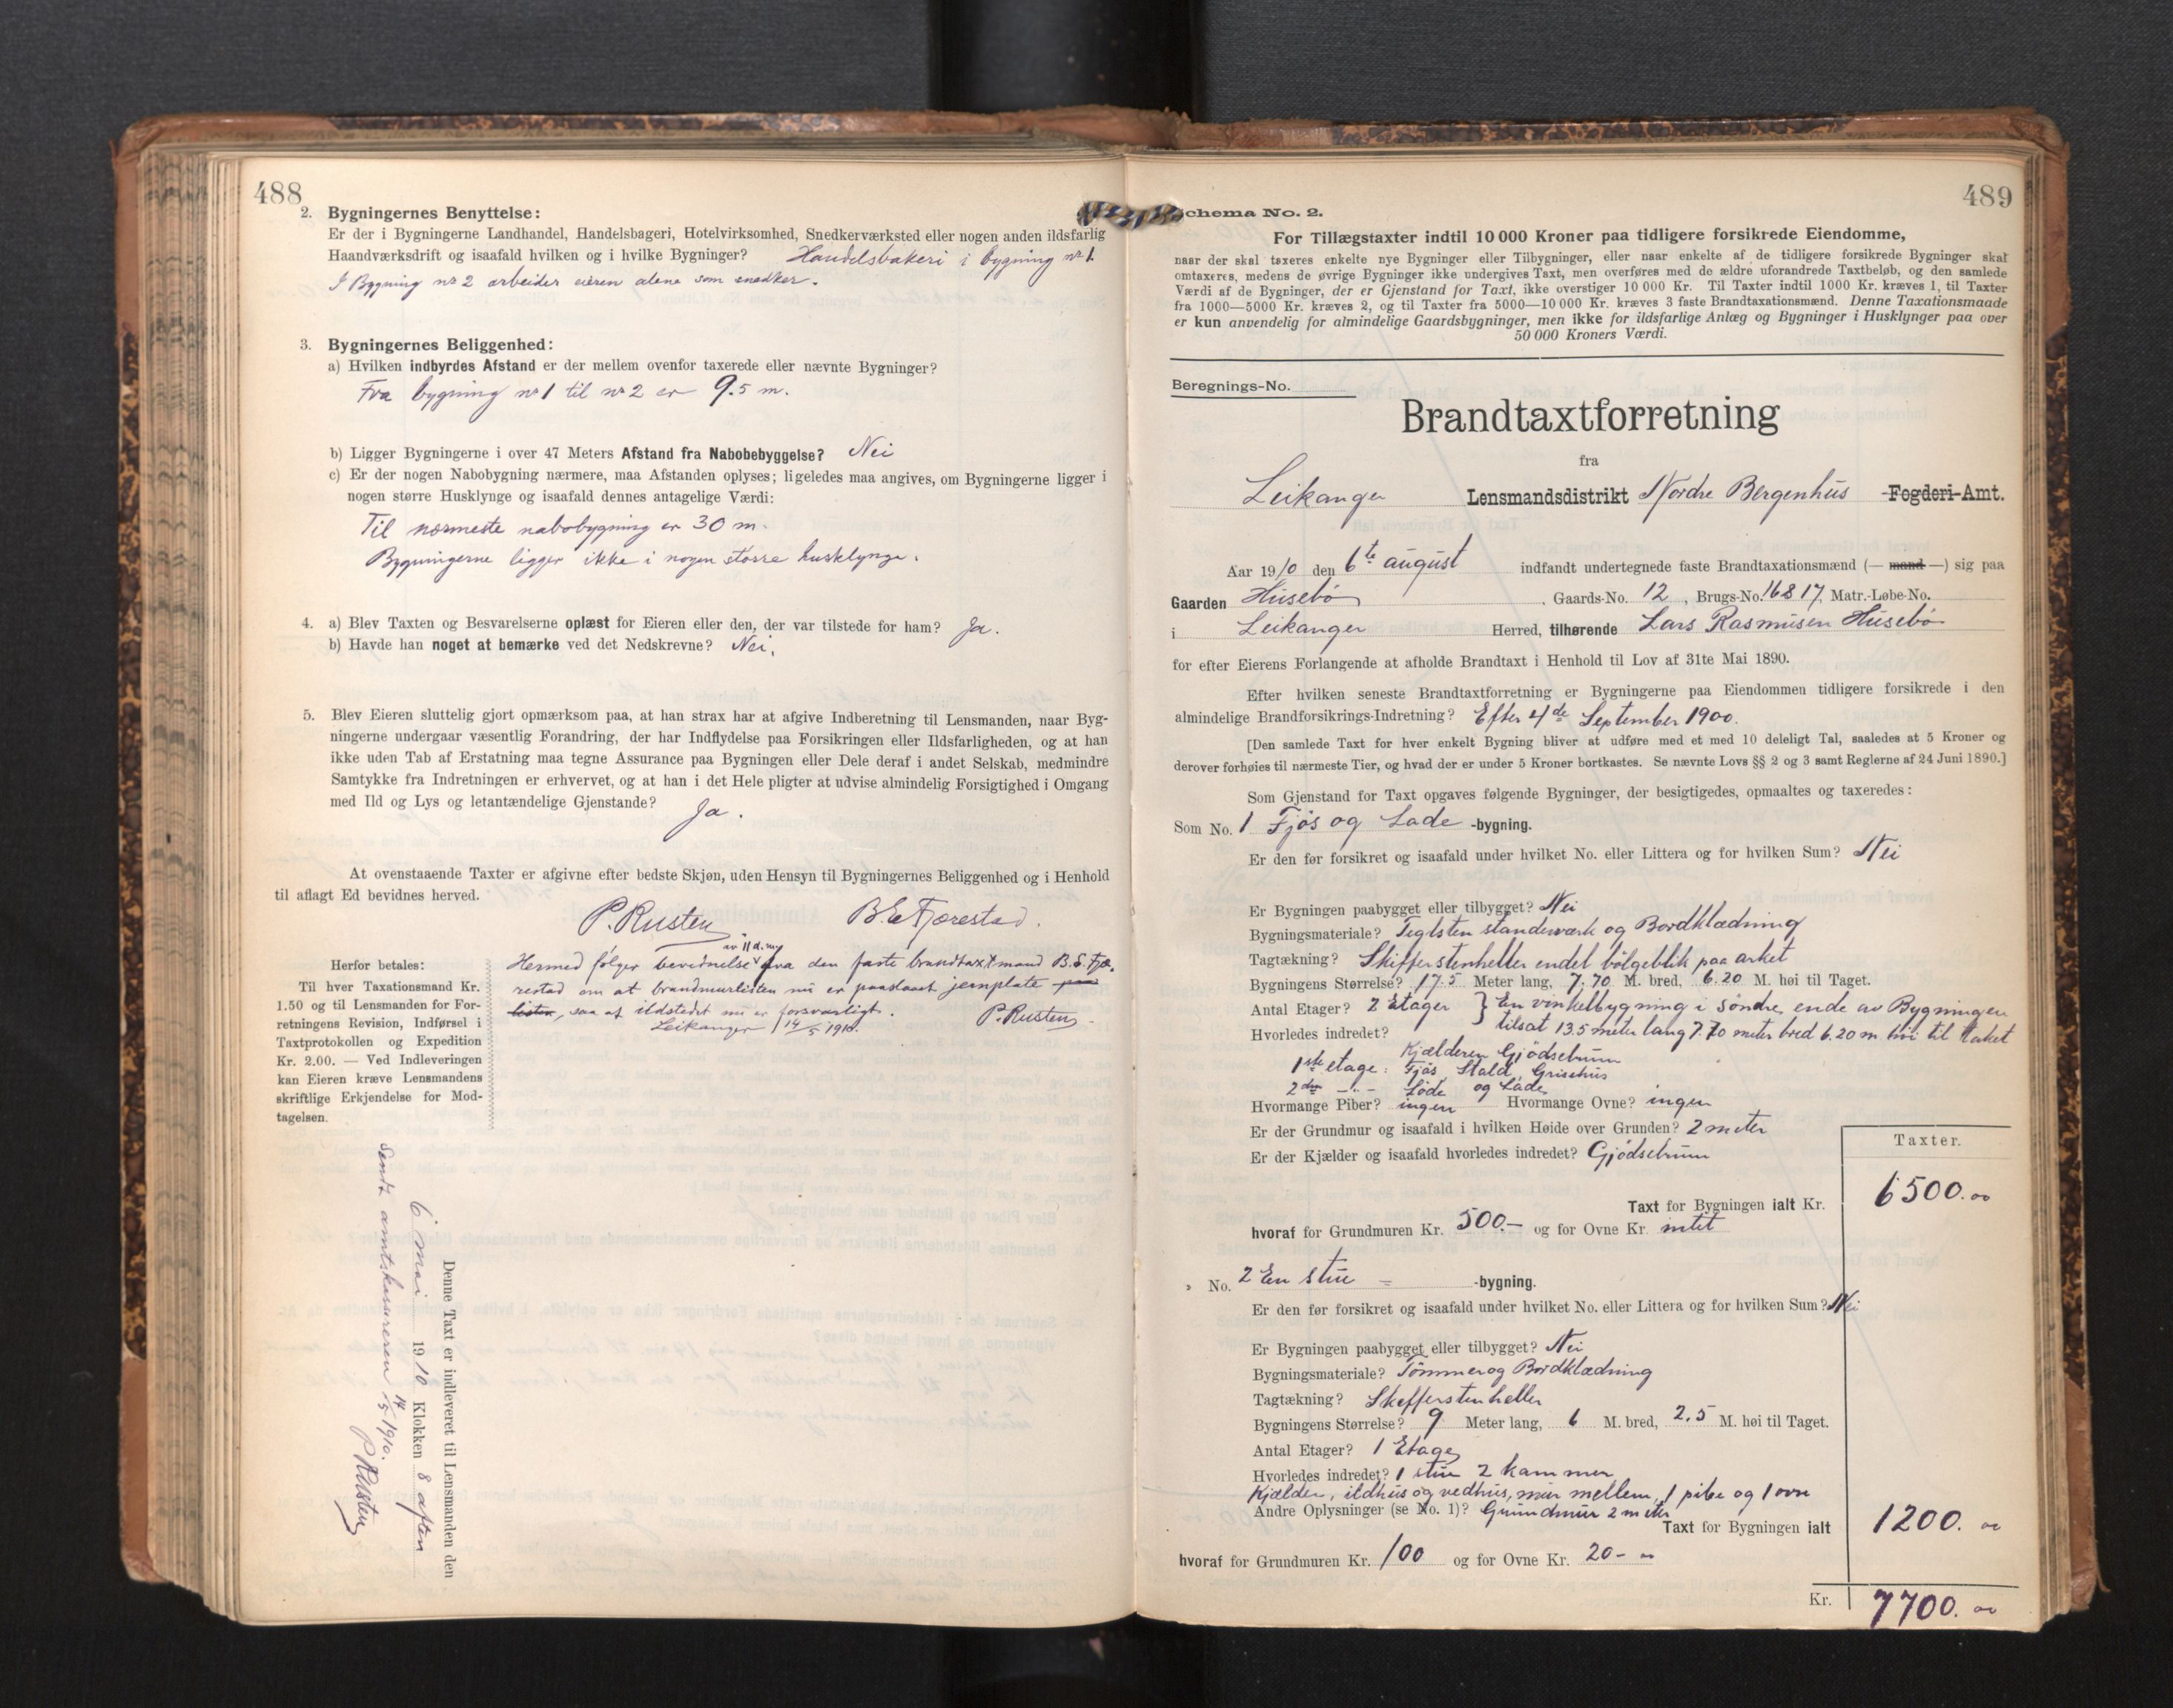 488
2. Bygningernes Benyttelse:
Er der i Bygningerne Landhandel, Handelsbageri, Hotelvirksomhed, Snedkerværksted eller nogen anden ildsfarlig
Haandværksdrift og isaafald hvilken og i hvilke Bygninger? Handelsbakeri i bygning nr 1.
I Bygning nr 2 arbeider eieren alene som snedker.
3. Bygningernes Beliggenhed:
a) Hvilken indbyrdes Afstand er der mellem ovenfor taxerede eller nævnte Bygninger?
Fra bygning nr 1 til nr 2 er 9.5 m.
b) Ligger Bygningerne i over 47 Meters Afstand fra Nabobebyggelse? Nei
c) Er der nogen Nabobygning nærmere, maa Afstanden oplyses; ligeledes maa angives, om Bygningerne ligger i
nogen større Husklynge og isaafald dennes antagelige Værdi:
Til nærmeste nabobygning er 30 m.
Bygningerne ligger ikke i nogen større husklynge.
4. a) Blev Taxten og Besvarelserne oplæst for Eieren eller den, der var tilstede for ham? Ja.
b) Havde han noget at bemærke ved det Nedskrevne? Nei.
5. Blev Eieren sluttelig gjort opmærksom paa, at han strax har at afgive Indberetning til Lensmanden, naar Byg-
ningerne undergaar væsentlig Forandring, der har Indflydelse paa Forsikringen eller Ildsfarligheden, og at han
ikke uden Tab af Erstatning maa tegne Assurance paa Bygningen eller Dele deraf i andet Selskab, medmindre
Samtykke fra Indretningen er erhvervet, og at han i det Hele pligter at udvise almindelig Forsigtighed i Omgang
med Ild og Lys og letantændelige Gjenstande? Ja.
At ovenstaaende Taxter er afgivne efter bedste Skjøn, uden Hensyn til Bygningernes Beliggenhed og i Henhold
til aflagt Ed bevidnes herved.
P. Rusten B. E. Fjærestad.
Herfor betales:
Til hver Taxationsmand Kr.
1.50 og til Lensmanden for For-
retningens Revision, Indførsel i
Taxtprotokollen og Expedition
Kr. 2.00. — Ved Indleveringen
kan Eieren kræve Lensmandens
skriftlige Erkjendelse for Mod-
tagelsen.
av 11 d.m.
Hermed følger bevidnelse fra den faste brandtaxtmand B. E. Fjæ-
restad om at brandmurlisten nu er paaslaaet jernplate paa
listen, saa at ildstedet nu er forsvarligt.
Leikanger 14/5 1910. P. Rusten.
Denne Taxt er indleveret til Lensmanden den
6 mai 1910 Klokken 8 aften
Sendt amtskassereren 14/5 1910.
P Rusten
489
Schema No. 2.
For Tillægstaxter indtil 10 000 Kroner paa tidligere forsikrede Eiendomme,
naar der skal taxeres enkelte nye Bygninger eller Tilbygninger, eller naar enkelte af de tidligere forsikrede Bygninger skal
omtaxeres, medens de øvrige Bygninger ikke undergives Taxt, men overføres med de ældre uforandrede Taxtbeløb, og den samlede
Værdi af de Bygninger, der er Gjenstand for Taxt, ikke overstiger 10 000 Kr. Til Taxter indtil 1000 Kr. kræves 1, til Taxter
fra 1000—5000 Kr. kræves 2, og til Taxter fra 5000—10 000 Kr. kræves 3 faste Brandtaxationsmænd. Denne Taxationsmaade
er kun anvendelig for almindelige Gaardsbygninger, men ikke for ildsfarlige Anlæg og Bygninger i Husklynger paa over
50 000 Kroners Værdi.
Beregnings-No.
Brandtaxtforretning
fra
Leikanger Lensmandsdistrikt Nordre Bergenhus Fogderi-Amt.
Aar 1910 den 6te august indfandt undertegnede faste Brandtaxationsmænd (— mand —) sig paa
Gaarden Husebø, Gaards-No. 12, Brugs-No. 16 & 17, Matr.-Løbe-No.
i Leikanger Herred, tilhørende Lars Rasmusen Husebø
for efter Eierens Forlangende at afholde Brandtaxt i Henhold til Lov af 31te Mai 1890.
Efter hvilken seneste Brandtaxtforretning er Bygningerne paa Eiendommen tidligere forsikrede i den
almindelige Brandforsikrings-Indretning? Efter 4de September 1900.
[Den samlede Taxt for hver enkelt Bygning bliver at udføre med et med 10 deleligt Tal, saaledes at 5 Kroner og
derover forhøies til nærmeste Tier, og hvad der er under 5 Kroner bortkastes. Se nævnte Lovs §§ 2 og 3 samt Reglerne af 24 Juni 1890.]
Som Gjenstand for Taxt opgaves følgende Bygninger, der besigtigedes, opmaaltes og taxeredes:
Som No. 1 Fjøs og Lade -bygning.
Er den før forsikret og isaafald under hvilket No. eller Littera og for hvilken Sum? Nei
Er Bygningen paabygget eller tilbygget? Nei
Bygningsmateriale? Teglsten standerværk og Bordklædning
Tagtækning? Skifferstenheller endel bölgeblik paa arket
Bygningens Størrelse? 17.5 Meter lang, 7.70 M. bred, 6.20 M. høi til Taget.
Antal Etager? 2 Etager } En vinkelbygning i söndre ende av Bygningen
Hvorledes indredet? tilsat 13.5 meter lang 7.70 meter bred 6.20 m höi til taket
Kjælderen Gjödselrum
1ste etage: Fjøs, Stald, Grisehus
2den —"— Löde og Lade
Hvormange Piber? ingen Hvormange Ovne? ingen
Er der Grundmur og isaafald i hvilken Høide over Grunden? 2 meter
Er der Kjælder og isaafald hvorledes indredet? Gjödselrum
Taxter.
Taxt for Bygningen ialt Kr. 6500.00
hvoraf for Grundmuren Kr. 500.- og for Ovne Kr. intet
" No. 2 En stue -bygning.
Er den før forsikret og isaafald under hvilket No. eller Littera og for hvilken Sum? Nei
Er Bygningen paabygget eller tilbygget? Nei
Bygningsmateriale? Tömmer og Bordklædning
Tagtækning? Skefferstenheller
Bygningens Størrelse? 9 Meter lang, 6 M. bred, 2.5 M. høi til Taget.
Antal Etager? 1 Etage
Hvorledes indredet? 1 stue 2 kammer
Kjælder, ildhus og vedhus, mur mellem, 1 pibe og 1 ovn
Andre Oplysninger (se No. 1)? Grundmur 2 meter
Taxt for Bygningen ialt 1200.00
hvoraf for Grundmuren Kr. 100 og for Ovne Kr. 20-00
Kr. 7700.00